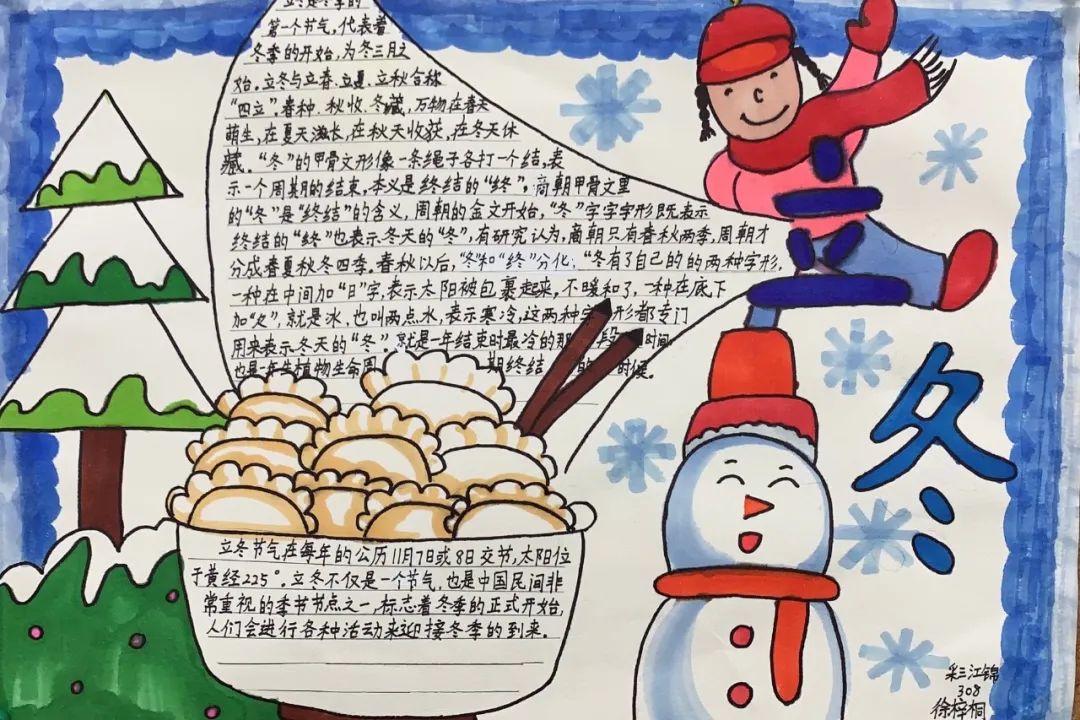 立冬是冬季的
第一个节气,代表着
冬季的开始,为冬三月之
始。立冬与立春、立夏、立秋合称
“四立”,春种、秋收、冬藏,万物在春天
萌生,在夏天滋长,在秋天收获,在冬天休
藏。“冬”的甲骨文形像一条绳子各打一个结,表
示一个周期的结束,本义是终结的“终”。商朝甲骨文里
的“冬”是“终结”的含义,周朝的金文开始,“冬”字字字形既表示
终结的“终”也表示冬天的“冬”,有研究认为,商朝只有春秋两季,周朝才
分成春夏秋冬四季。春秋以后,“冬”和“终”分化,“冬有了自己的的两种字形,
一种在中间加“日”字,表示太阳被包裹起来,不暖和了,一种在底下
加“仌”,就是冰,也叫两点水,表示寒冷,这两种字形都专门
用来表示冬天的“冬”。就是一年结束时最冷的那段时间
也是一年生植物生命周期终结的时候。
立冬
冬
立冬节气在每年的公历11月7日或8日交节,太阳位
于黄经225°。立冬不仅是一个节气,也是中国民间非
常重视的季节节点之一,标志着冬季的正式开始,
人们会进行各种活动来迎接冬季的到来。
彩三江锦
308
徐梓桐